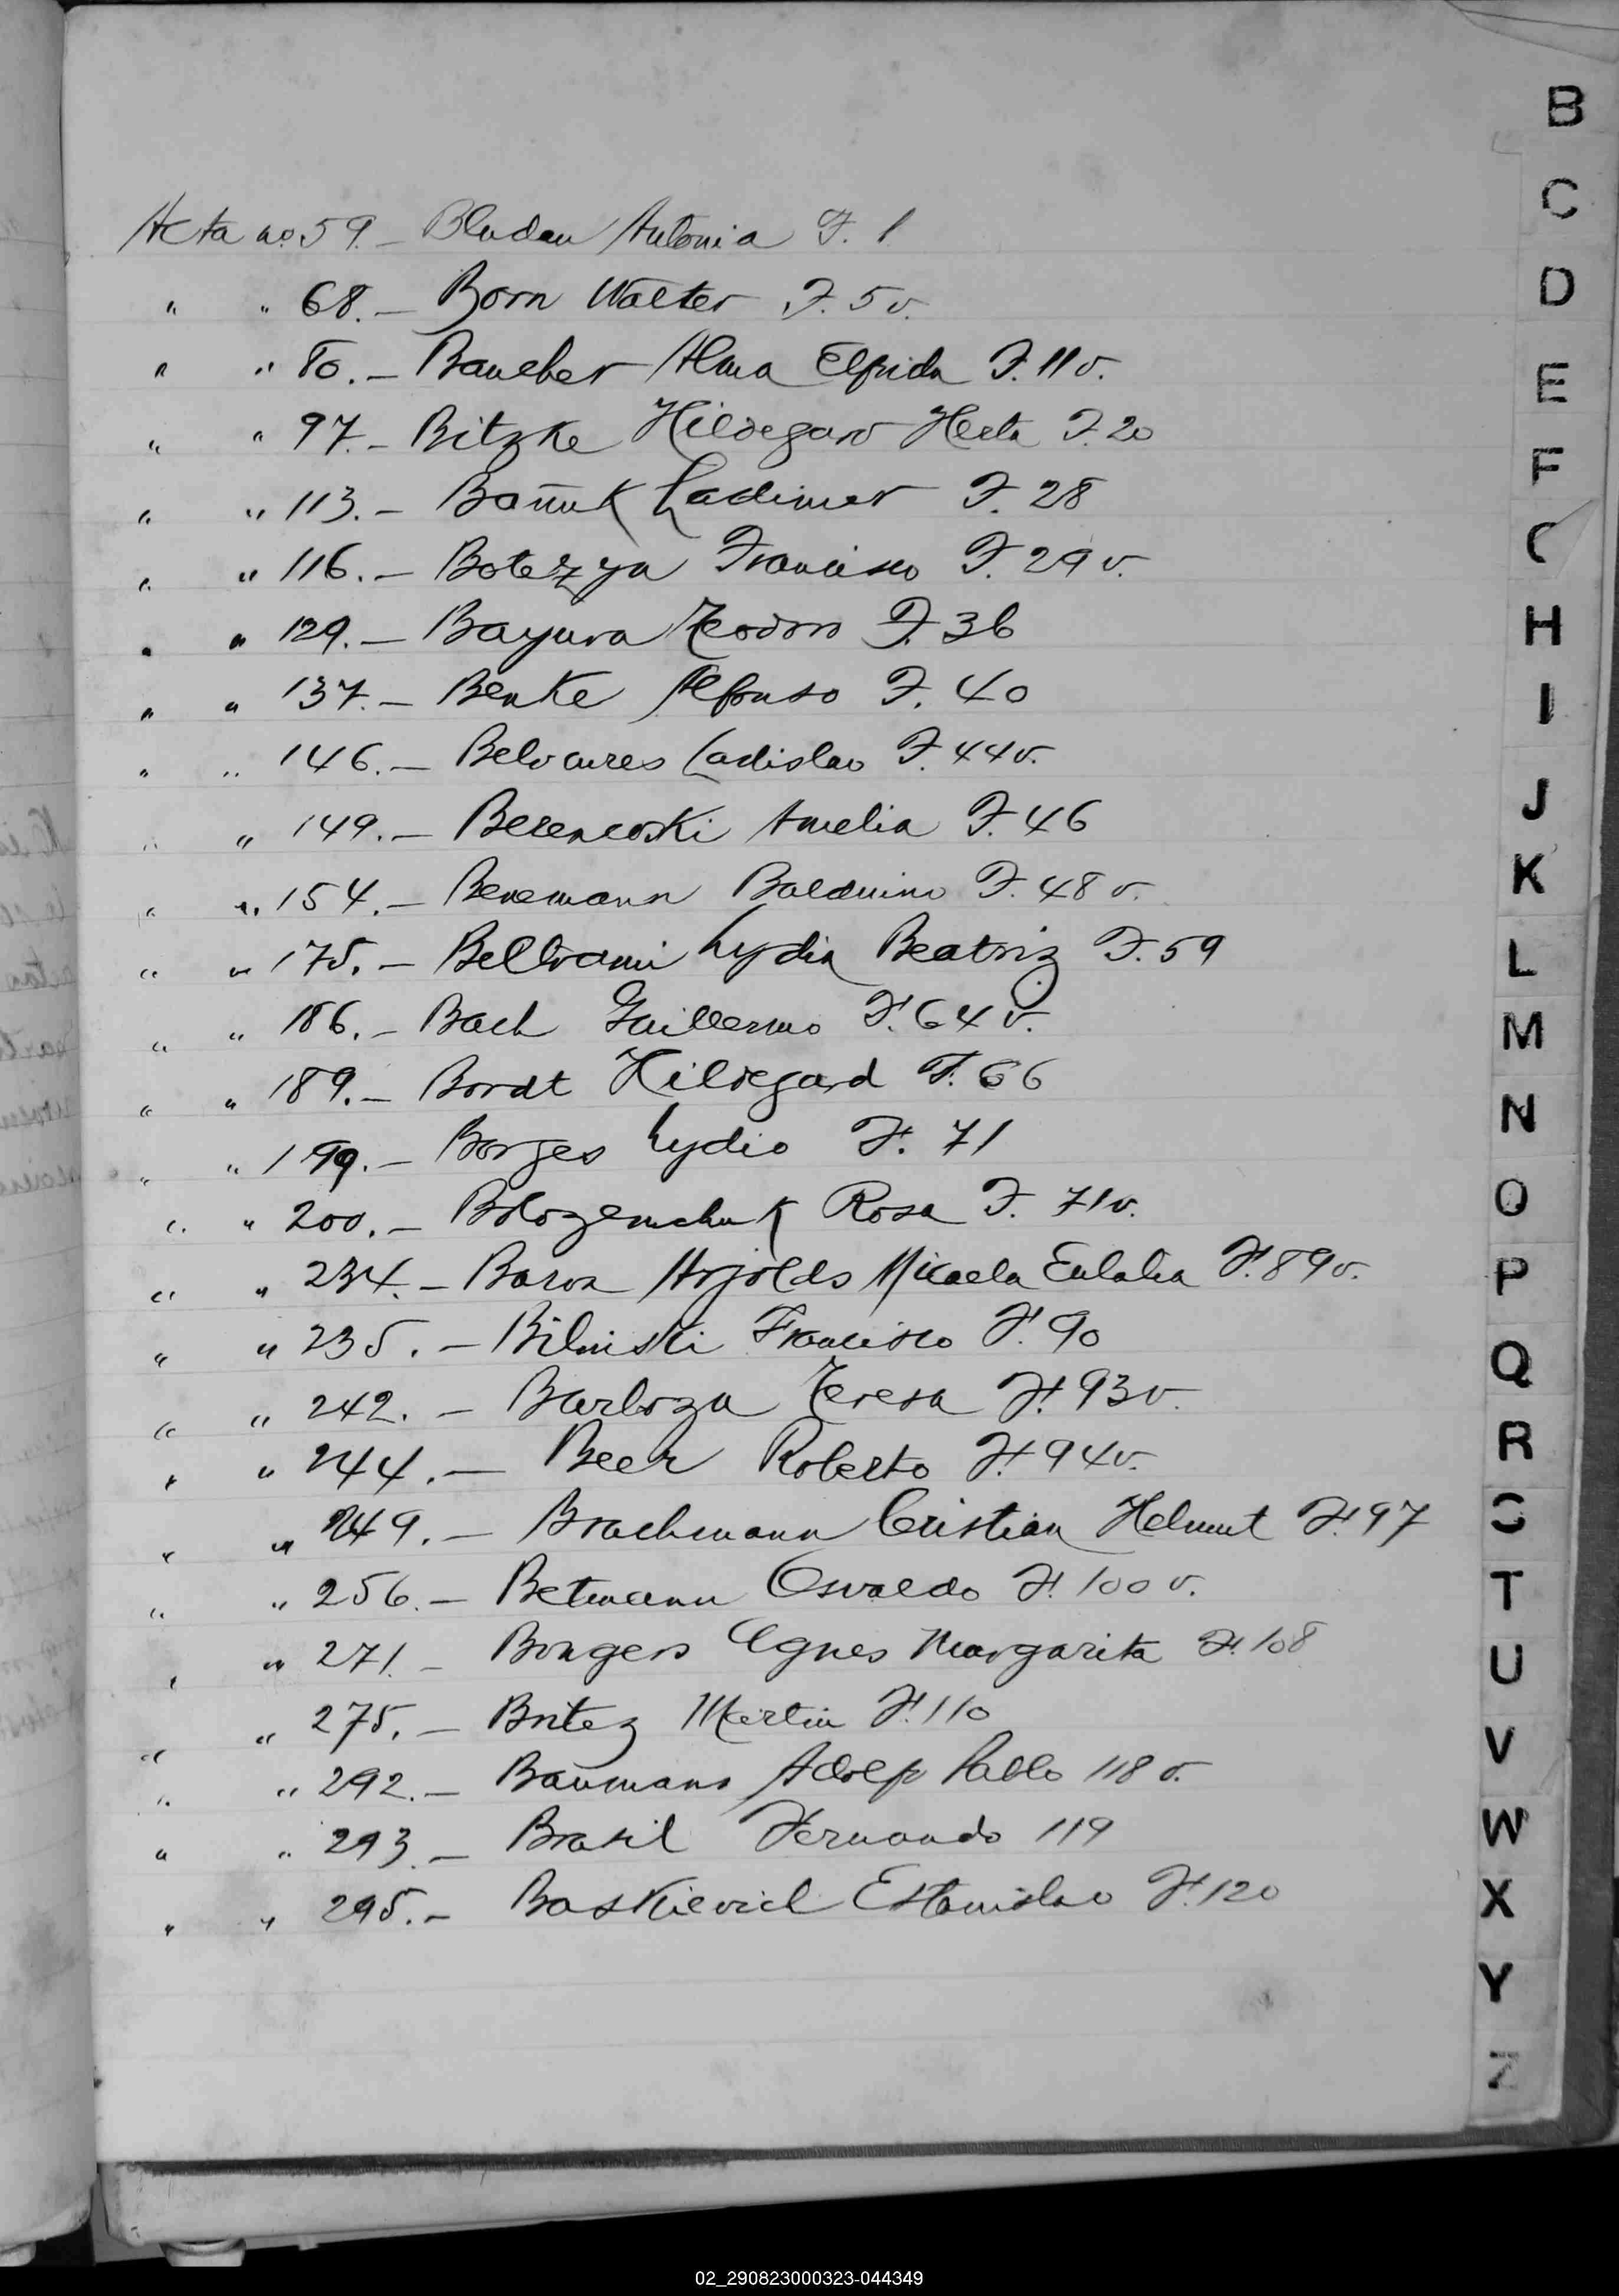 Acta no 59.- Bludau Antonia F. 1
" " 68.- Born Walter F. 5 v.
" " 80.- Baucher Alma Elfrida F. 11 v.
" " 97.- Bitzke Hildegard Herta F. 20
" " 113.- Ladimer F. 28
" " 116.- Francisco F. 29 v.
" " 129.- Bayura Teodoro F. 36
" " 137.- Benke Alfonso F. 40
" " 146.- Ladislao F. 44 v.
" " 149.- Amelia F. 46
" " 154.- Benemann Balduino F. 48 v.
" " 175.- Beltrami Lydia Beatriz F. 59
" " 186.- Bach Guillermo F. 64 v.
" " 189.- Bordt Hildegard F. 66
" " 199.- Borges Lydio F. 71
" " 200.- Rosa F. 71 v.
" " 234.- Micaela Eulalia F. 89 v.
" " 235.- Bilinski Francisco F. 90
" " 242.- Barboza Teresa F. 93 v.
" " 244.- Beer Roberto F. 94 v.
" " 249.- Brachmann Cristian Helmut F. 97
" " 256.- Betmann Osvaldo F. 100 v.
" " 271.- Bongers Agnes Margarita F. 108
" " 275.- Britez Martin F. 110
" " 292.- Baumann Adolfo Pablo 118 v.
" " 293.- Brasil Fernando 119
" " 295.- Baskievich Estanislao F. 120
B
C
D
E
F
H
I
J
K
L
M
N
O
P
Q
R
T
U
V
W
X
Y
Z
02_290823000323-044349